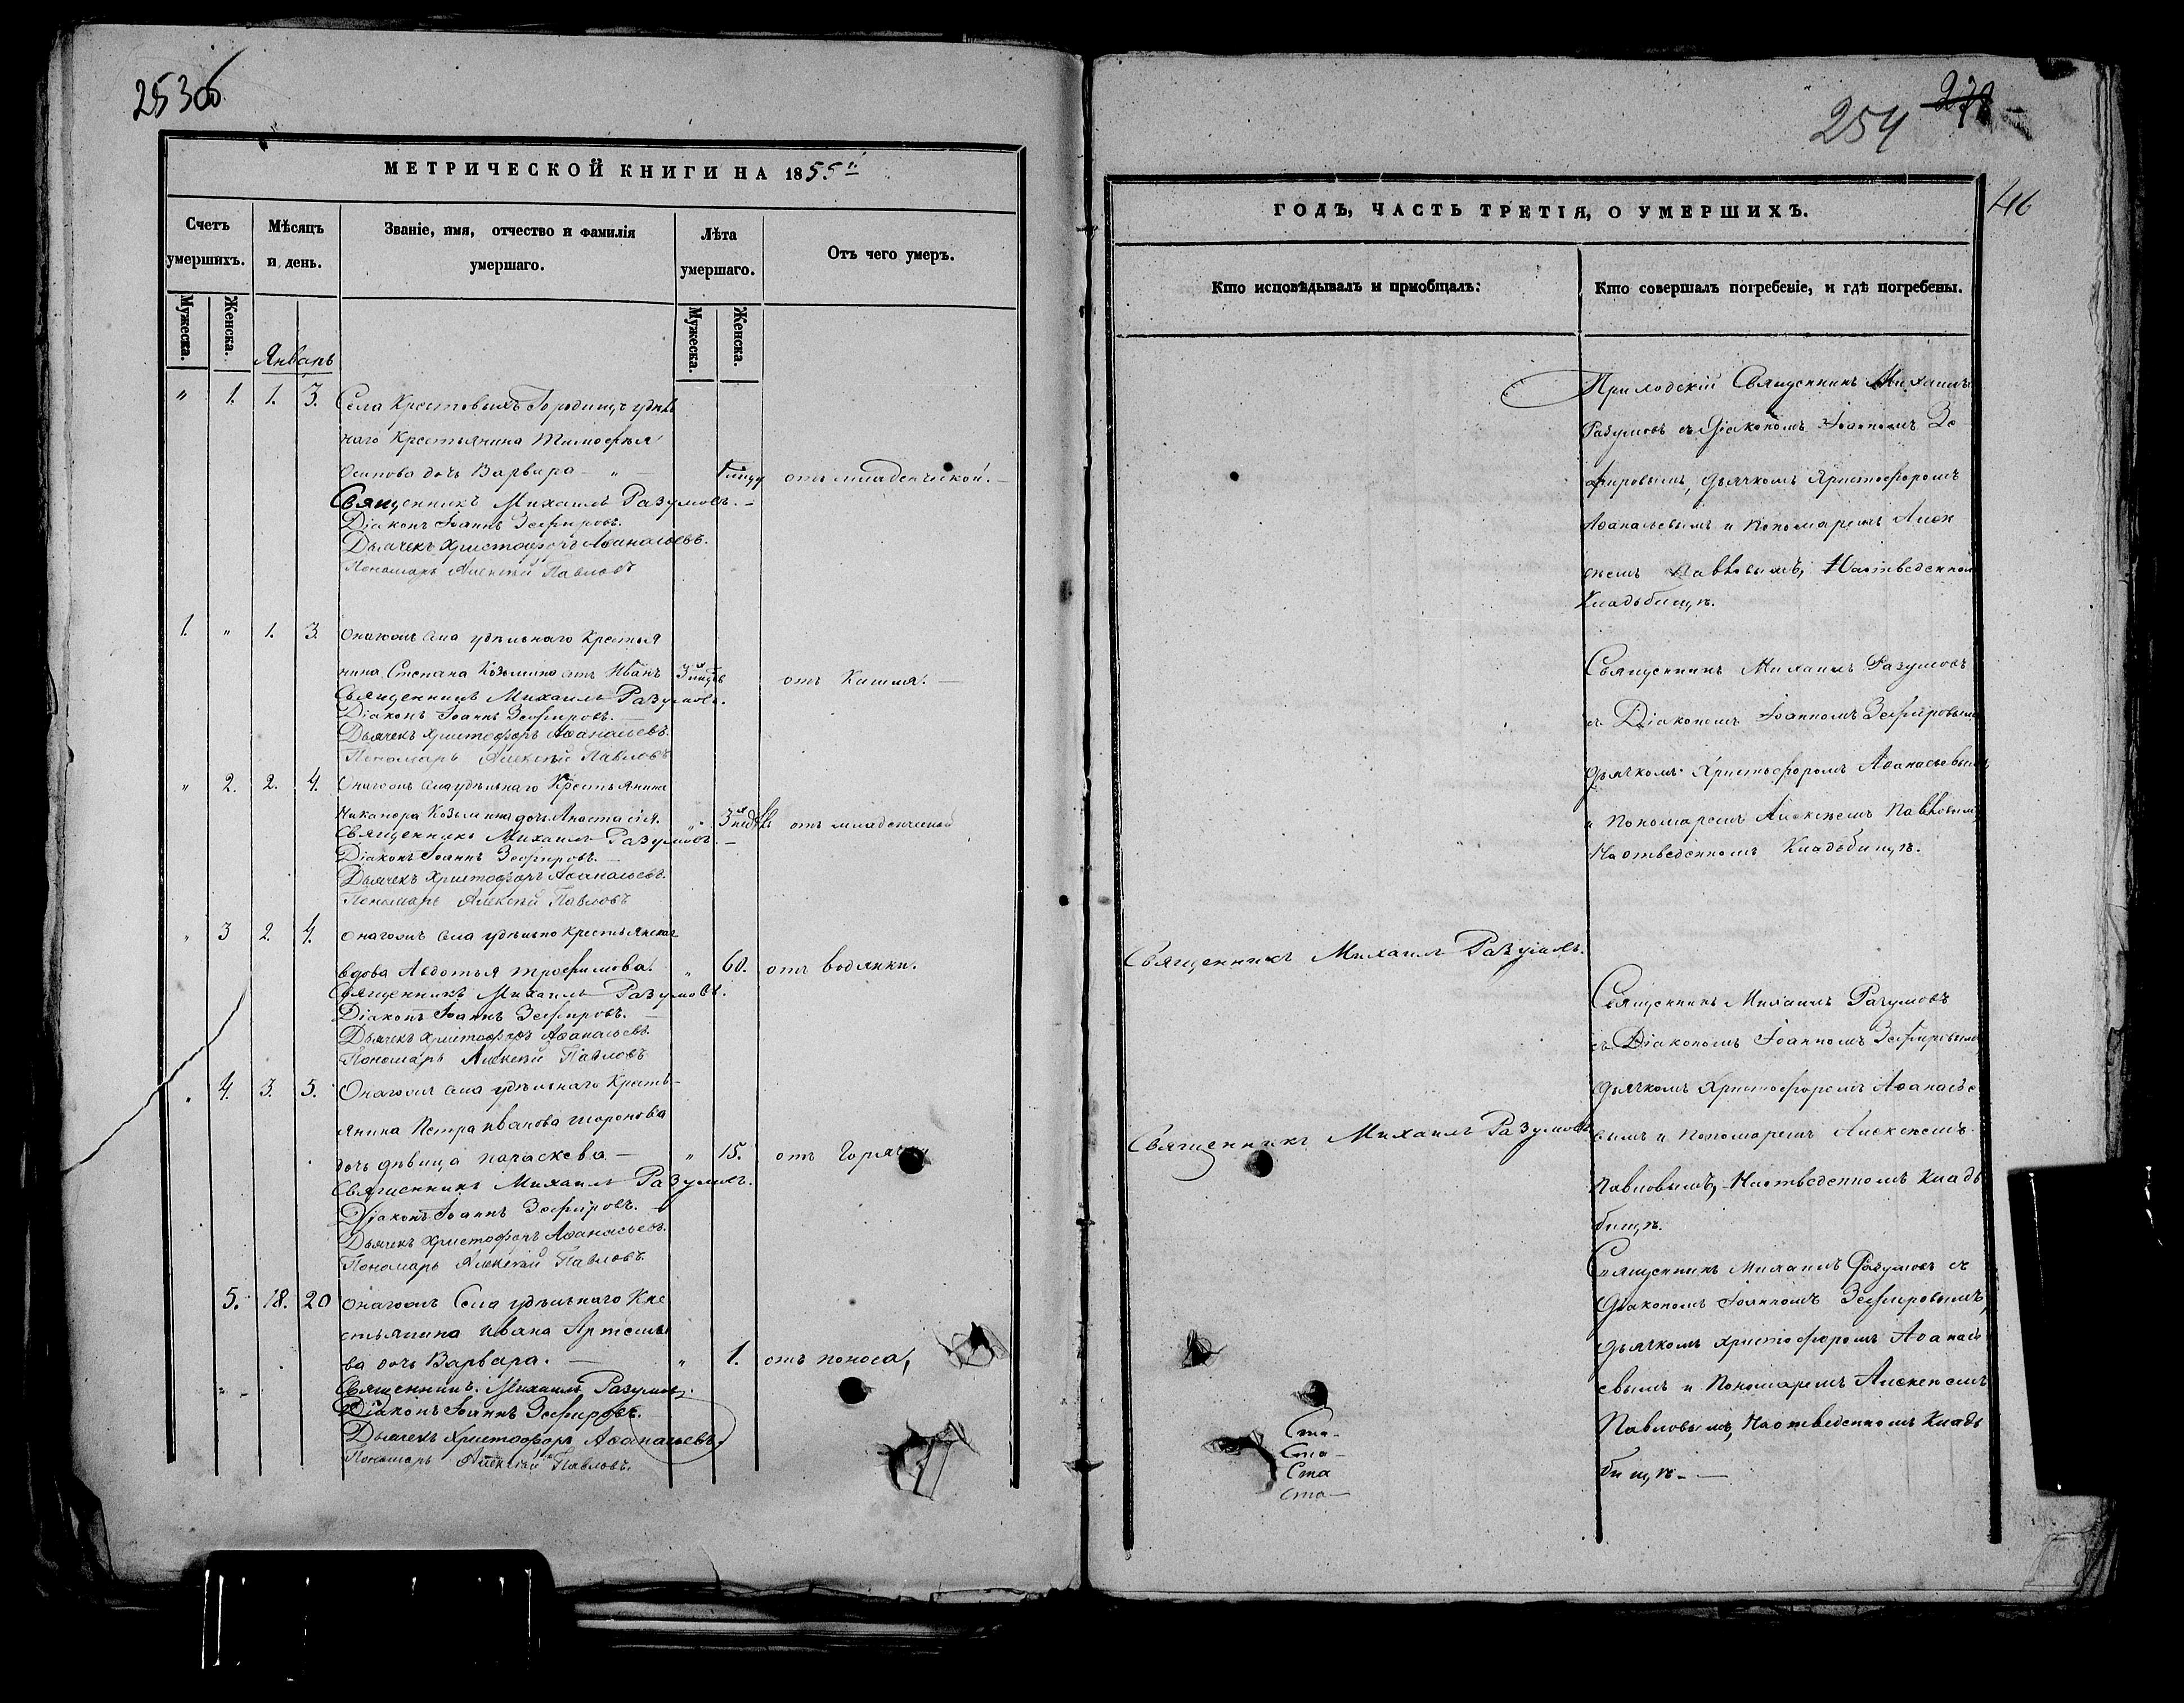 253об
МЕТРИЧЕСКОЙ КНИГИ НА 1855й
Счетъ умершихъ.
Мѣсяцъ и день.
Званіе, имя, отчество и фамилія умершаго.
Лѣта умершаго.
Отъ чего умеръ.
Мужеска.
Женска.
Мужеска.
Женска.
Январь
" 1. 1. 3. Села Крестовыхъ Городищъ удѣль
наго Крестьянина Тимофея
Осипова дочь Варвара — " — отъ младенческой. —
Священникъ Михаилъ Разумовъ. —
Діаконъ Іоаннъ Зефировъ.
Дьячекъ Христофоръ Аѳанасьевъ.
Пономарь Алексѣй Павловъ
1. " 1. 3. Онагожъ села удѣльнаго Крестья
нина Степана Козьмина сынъ Иванъ 3 отъ Кашля. —
Священникъ Михаилъ Разумовъ.
Діаконъ Іоаннъ Зефировъ. —
Дьячекъ Христофоръ Аѳанасьевъ.
Пономарь Алексѣй Павловъ
" 2. 2. 4. Онагожъ села удѣльнаго Крестьянина
Никанора Козьмина дочь Анастасія. " 3 недѣль отъ младенческой
Священникъ Михаилъ Разумовъ. —
Діаконъ Іоаннъ Зефировъ. —
Дьячекъ Христофоръ Аѳанасьевъ.
Пономарь Алексѣй Павловъ
" 3 2. 4. Онагожъ села удѣльно крестьянская
вдова Авдотья Трофимова. " 60. отъ водянки.
Священникъ Михаилъ Разумовъ.
Діаконъ Іоаннъ Зефировъ. —
Дьячекъ Христофоръ Аѳанасьевъ.
Пономарь Алексѣй Павловъ
" 4. 3. 5. Онагожъ села удѣльнаго Кресть-
янина Петра Иванова
дочь дѣвица Параскева — " 15. отъ Горячки
Священникъ Михаилъ Разумовъ.
Діаконъ Іоаннъ Зефировъ. —
Дьячекъ Христофоръ Аѳанасьевъ.
Пономарь Алексѣй Павловъ.
5. 18. 20 Онагожъ Села удѣльнаго Кре
стьянина Ивана Артемье
ва дочь Варвара. — " 1. отъ поноса,
Священникъ Михаилъ Разумовъ.
Діаконъ Іоаннъ Зефировъ.
Дьячекъ Христофоръ Аѳанасьевъ.
Пономарь Алексѣй Павловъ.
254
278
46
ГОДЪ, ЧАСТЬ ТРЕТІЯ, О УМЕРШИХЪ.
Кто исповѣдывалъ и пріобщалъ:
Кто совершалъ погребеніе, и гдѣ погребены.
Приходскій Священникъ Михаилъ
Разумовъ съ Діакономъ Іоанномъ Зе
фировымъ, дьячкомъ Христофоромъ
Аѳанасьевымъ и Пономаремъ Алек
сѣемъ Павловымъ, На отведенномъ
Кладбищѣ.
Священникъ Михаилъ Разумовъ
съ Діакономъ Іоанномъ Зефировымъ
дьячкомъ Христофоромъ Аѳанасьевымъ
и Пономаремъ Алексѣемъ Павловымъ,
На отведенномъ Кладьбищѣ.
Священникъ Михаилъ Разумовъ.
Священникъ Михаилъ Разумовъ
съ Діакономъ Іоанномъ Зефировымъ,
дьячкомъ Христофоромъ Аѳанасье
Священникъ Михаилъ Разумовъ
вымъ и Пономаремъ Алексѣемъ
Павловымъ, На отведенномъ Кладь
бищѣ.
Священникъ Михаилъ Разумовъ съ
Діакономъ Іоанномъ Зефировымъ,
дьячкомъ Христофоромъ Аѳанась
евымъ и Пономаремъ Алексѣемъ
Павловымъ, На отведенномъ Кладь
бищѣ. —
Ста-
Ста-
Ста
Ста-